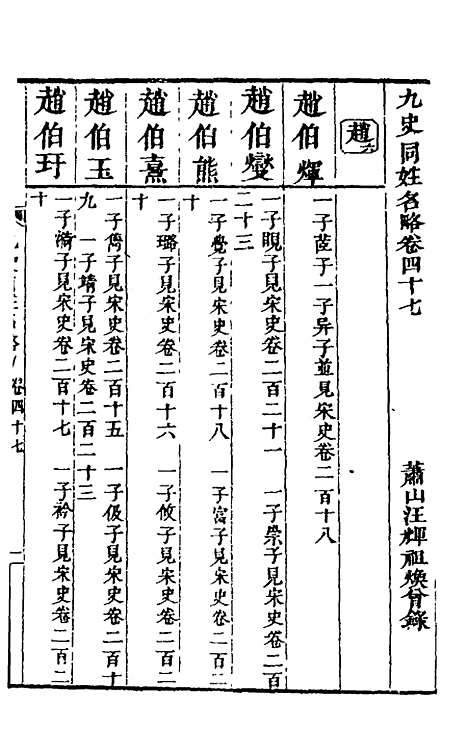 九史同姓名略卷四十七
蕭山汪輝祖煥曾錄
趙六
趙伯輝
一子莐子一子异子並見宋史卷二百十八
趙伯燮
一子睍子見宋史卷二百二十一 一子崇子見宋史卷二百
二十三
趙伯熊
一子覺子見宋史卷二百十八 一子富子見宋史卷二百二
十
趙伯熹
一子璐子見宋史卷二百十六 一子攸子見宋史卷二百二
十
趙伯玉
一子儁子見宋史卷二百十五 一子伋子見宋史卷二百十
九 一子靖子見宋史卷二百二十三
趙伯玗
一子濤子見宋史卷二百十七 一子衿子見宋史卷二百二
十
卷四十七
一